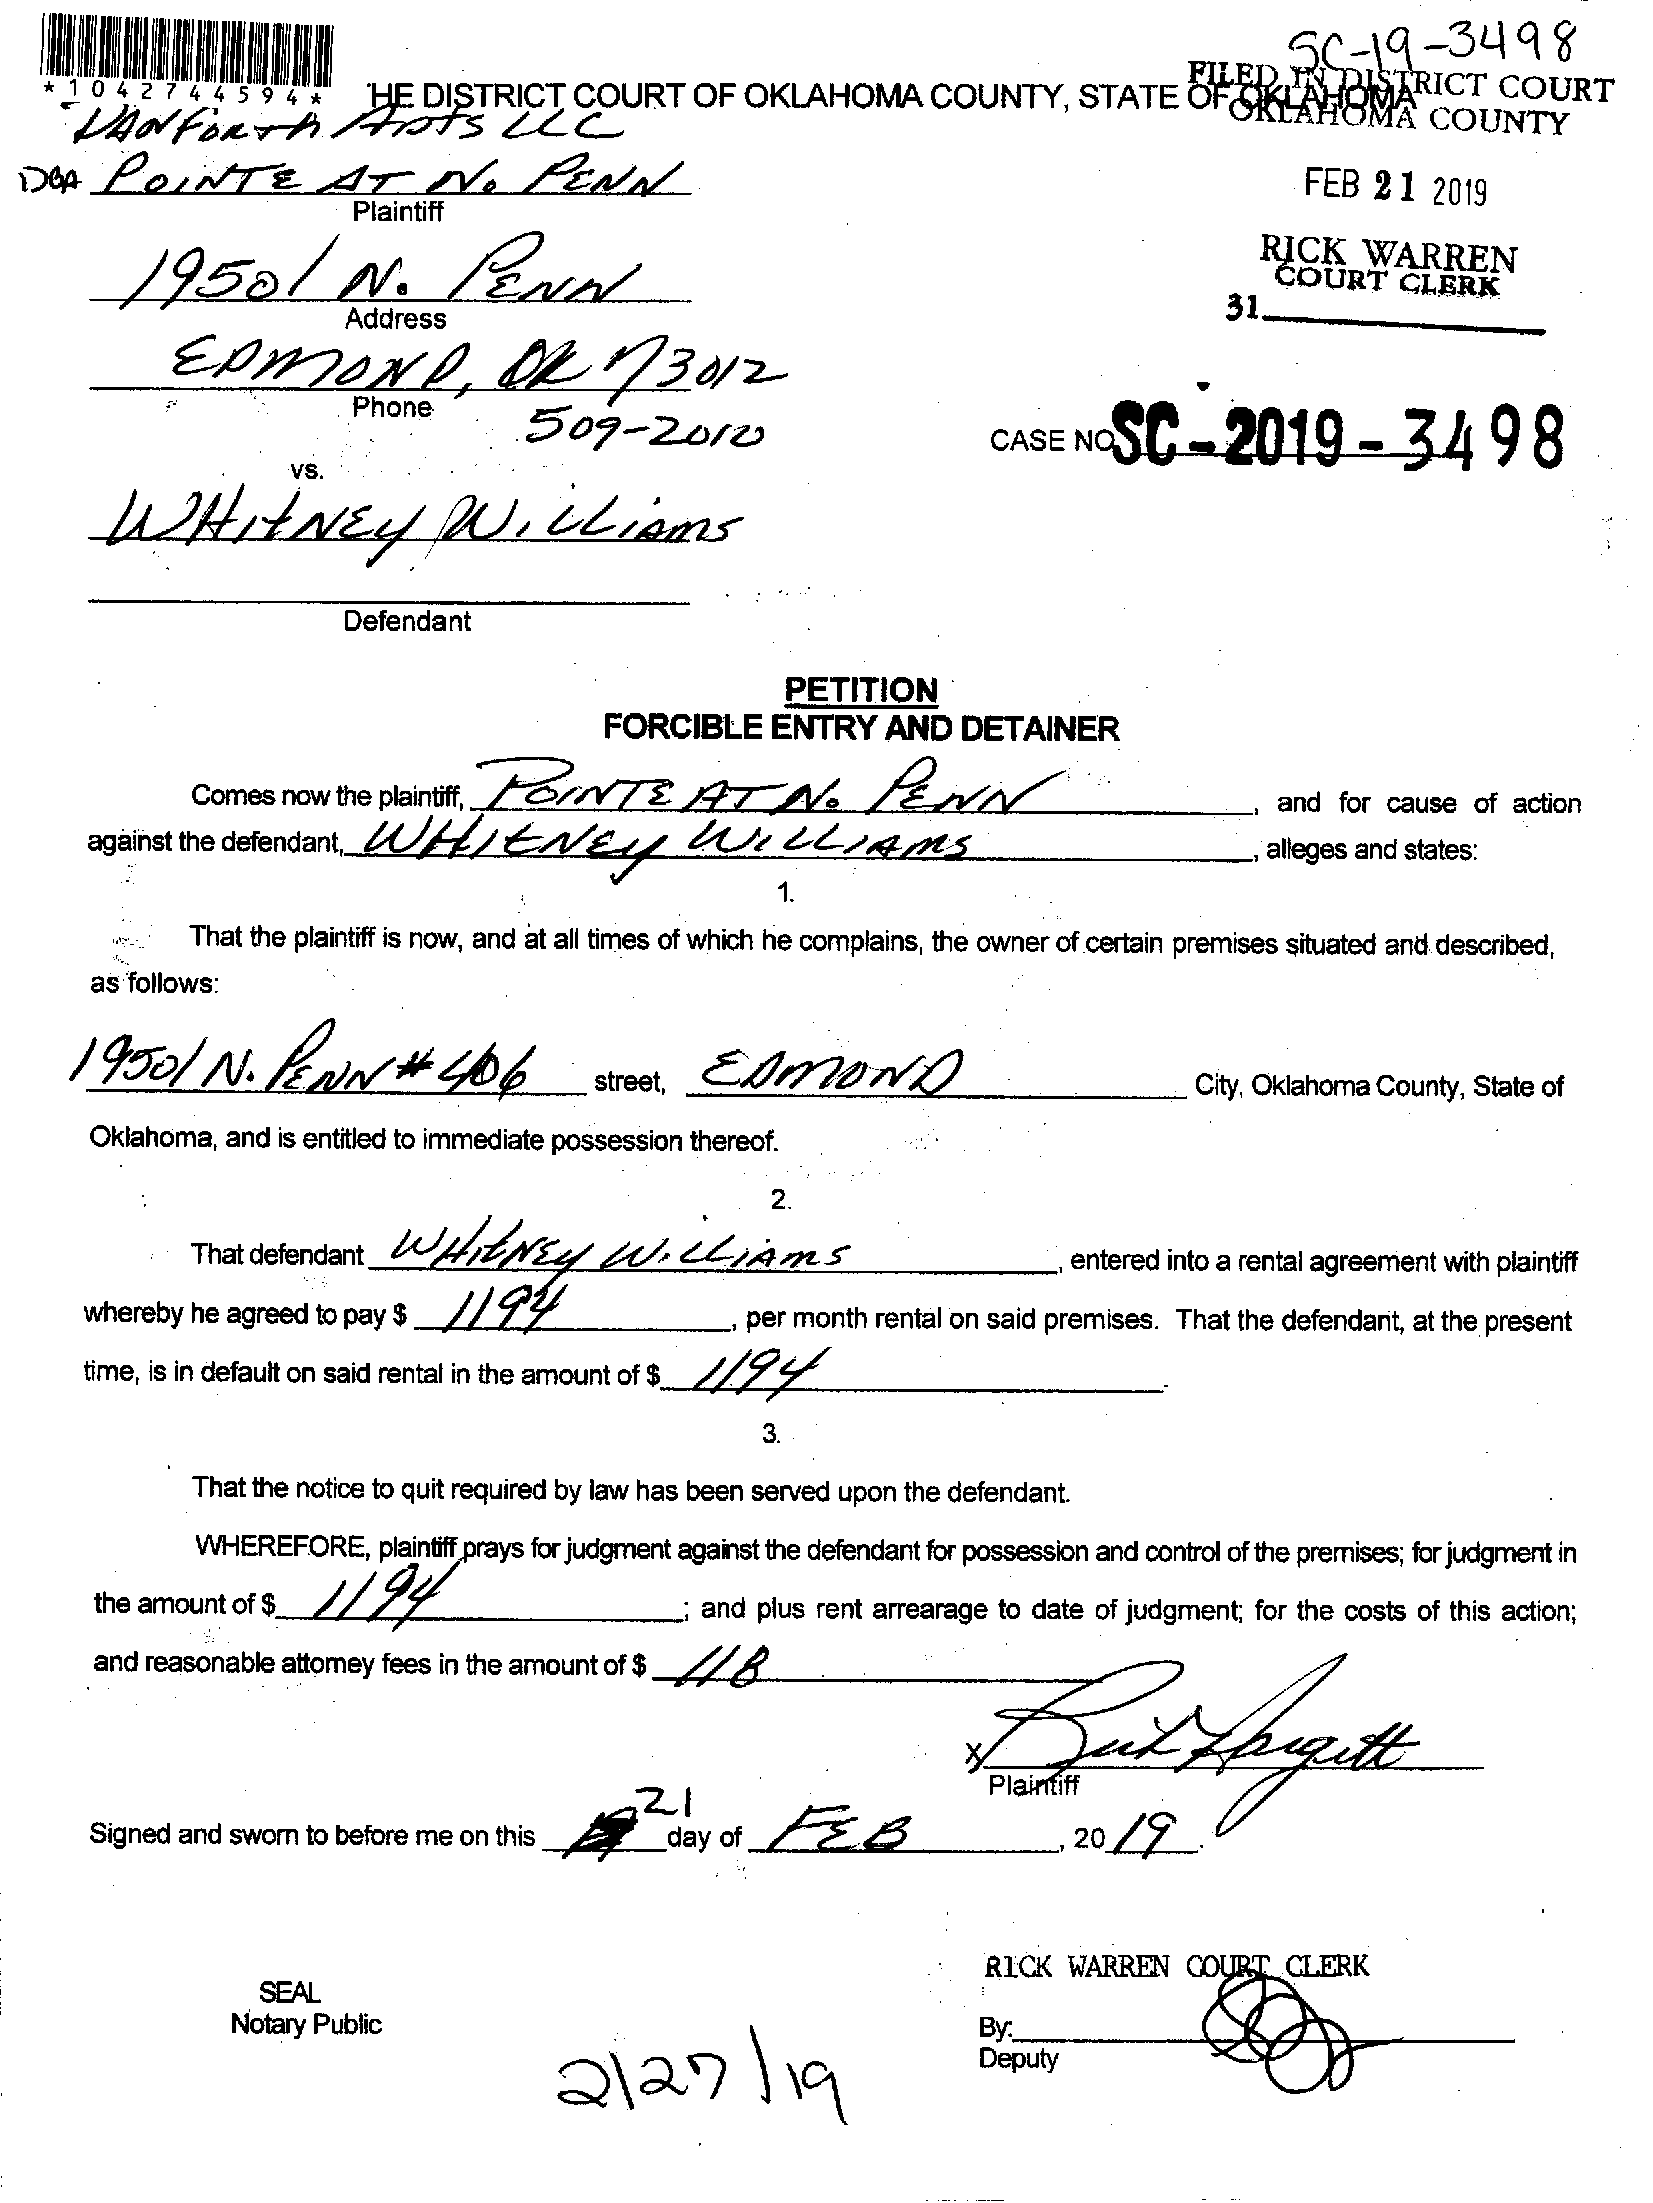 SC-19-3498
*1042744594*
HE DISTRICT COURT OF OKLAHOMA COUNTY, STATE OF OKLAHOMA
FILED IN DISTRICT COURT
OKLAHOMA COUNTY
DANFORTH APTS LLC
DBA POINTE AT No PENN
Plaintiff
FEB 21 2019
19501 N. PENN
Address
RICK WARREN
COURT CLERK
31
EDMOND, OK 73012
Phone
509-2010
CASE NO SC-2019-3498
vs.
WHITNEY WILLIAMS
Defendant
PETITION
FORCIBLE ENTRY AND DETAINER
Comes now the plaintiff, POINTE AT No PENN, and for cause of action
against the defendant, WHITNEY WILLIAMS, alleges and states:
1.
That the plaintiff is now, and at all times of which he complains, the owner of certain premises situated and described,
as follows:
19501 N. PENN # 406 street, EDMOND City, Oklahoma County, State of
Oklahoma, and is entitled to immediate possession thereof.
2.
That defendant WHITNEY WILLIAMS, entered into a rental agreement with plaintiff
whereby he agreed to pay $ 1194, per month rental on said premises. That the defendant, at the present
time, is in default on said rental in the amount of $ 1194.
3.
That the notice to quit required by law has been served upon the defendant.
WHEREFORE, plaintiff prays for judgment against the defendant for possession and control of the premises; for judgment in
the amount of $ 1194; and plus rent arrearage to date of judgment; for the costs of this action;
and reasonable attorney fees in the amount of $
X
Plaintiff
Signed and sworn to before me on this 21 day of FEB, 20 19.
RICK WARREN COURT CLERK
SEAL
Notary Public
By:
Deputy
2/27/19